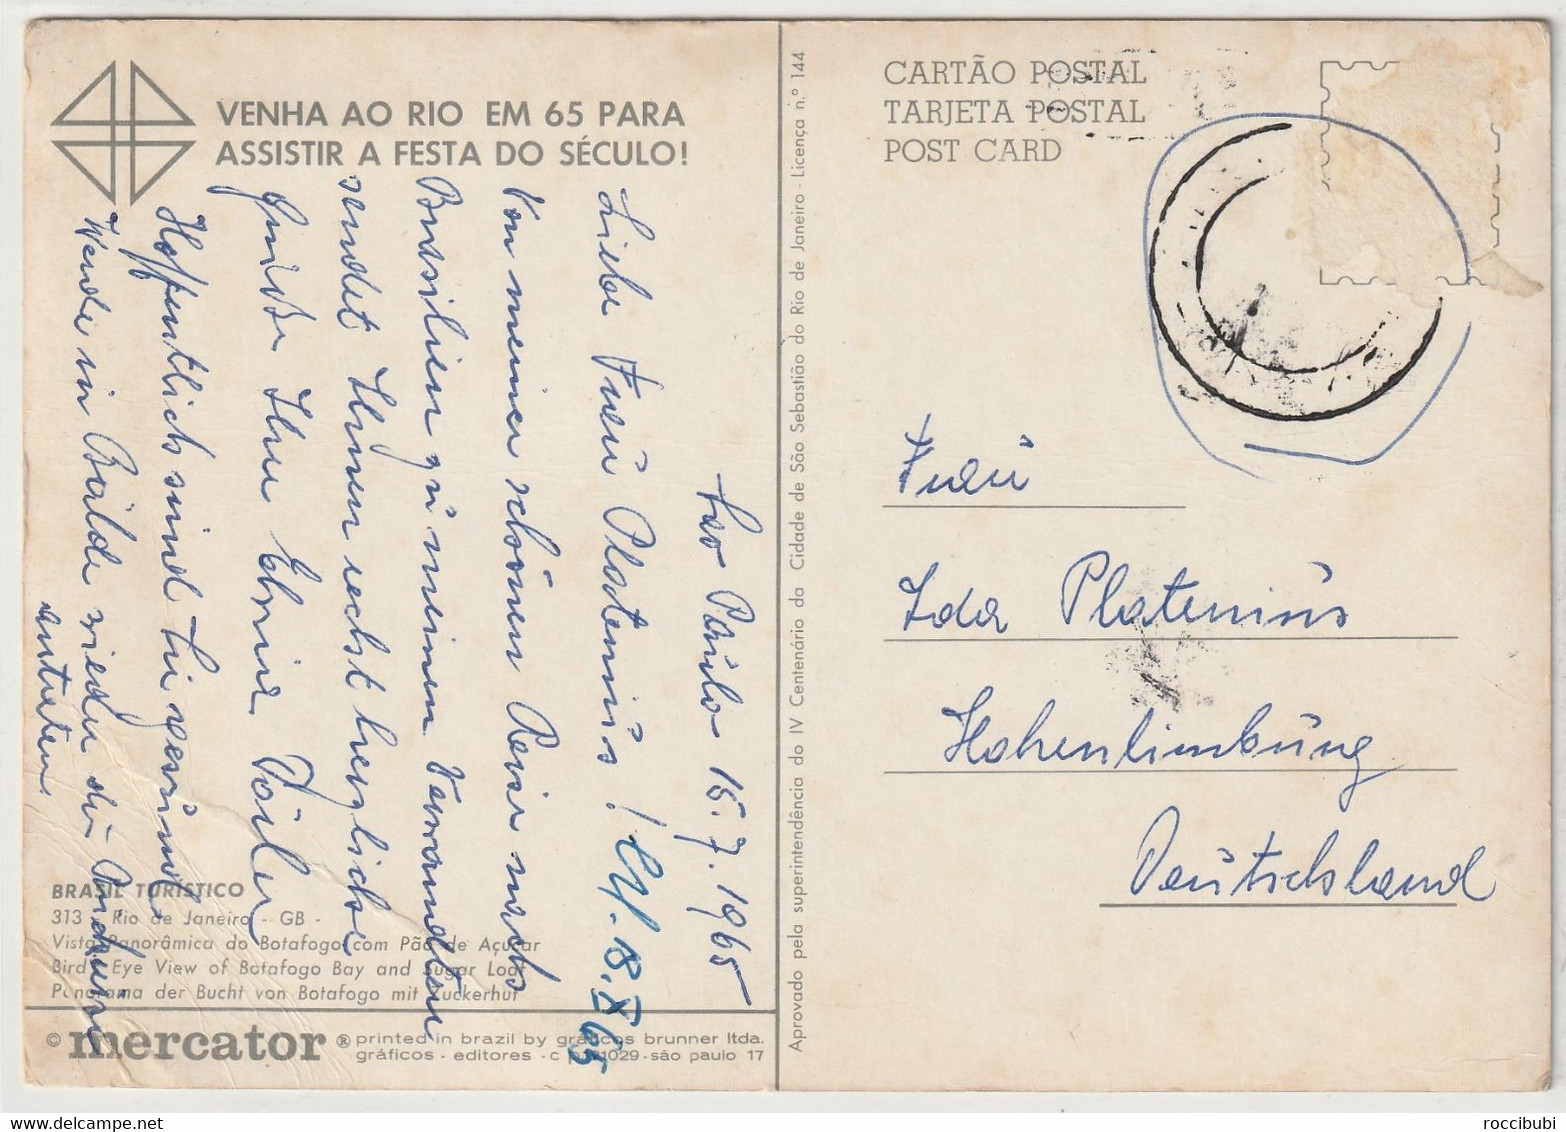 VENHA AO RIO EM 65 PARA
ASSISTIR A FESTA DO SÉCULO!
Sao Paulo 15.7.1965
Liebe Frau Platenius!
Von meiner schönen Reise nach
Brasilien zu meinen Verwandten
sendet Ihnen recht herzliche
Grüße Ihre Erna
Hoffentlich sind Sie gesund,
Werde in Bälde wieder die
antreten.
18.X 65
BRASIL TURÍSTICO
313 - Rio de Janeiro - GB -
Vista Panorâmica do Botafogo com Pão de Açúcar
Bird's Eye View of Botafogo Bay and Sugar Loaf
Panorama der Bucht von Botafogo mit Zuckerhut
© mercator ® printed in brazil by gráficos brunner ltda.
gráficos - editores - c 1029 - são paulo 17
Aprovado pela superintendência do IV Centenário da Cidade de São Sebastião do Rio de Janeiro - Licença n.º 144
CARTÃO POSTAL
TARJETA POSTAL
POST CARD
Frau
Ida Platenius
Hohenlimburg
Deutschland
roccibubi